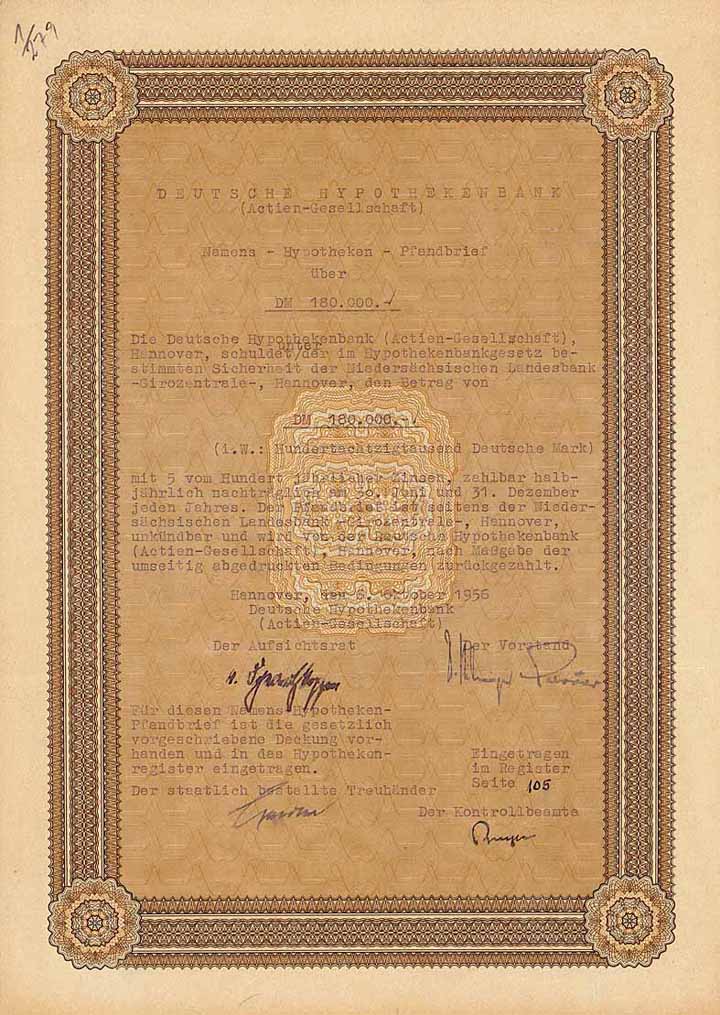 1/279
DEUTSCHE HYPOTHEKENBANK
(Actien-Gesellschaft)
Namens - Hypotheken - Pfandbrief
über
DM 180.000.-
Die Deutsche Hypothekenbank (Actien-Gesellschaft),
unter
Hannover, schuldet/der im Hypothekenbankgesetz be-
stimmten Sicherheit der Niedersächsischen Landesbank
-Girozentrale-, Hannover, den Betrag von
DM 180.000.-
(i.W.: Hundertachtzigtausend Deutsche Mark)
mit 5 vom Hundert jährlicher Zinsen, zahlbar halb-
jährlich nachträglich am 30. Juni und 31. Dezember
jeden Jahres. Der Pfandbrief ist seitens der Nieder-
sächsischen Landesbank -Girozentrale-, Hannover,
unkündbar und wird von der Deutsche Hypothekenbank
(Actien-Gesellschaft), Hannover, nach Maßgabe der
umseitig abgedruckten Bedingungen zurückgezahlt.
Hannover, den 6. Oktober 1956
Deutsche Hypothekenbank
(Actien-Gesellschaft)
Der Aufsichtsrat
Der Vorstand
Für diesen Namens-Hypotheken-
Pfandbrief ist die gesetzlich
vorgeschriebene Deckung vor-
handen und in das Hypotheken-
register eingetragen.
Der staatlich bestellte Treuhänder
Eingetragen
im Register
Seite 105
Der Kontrollbeamte